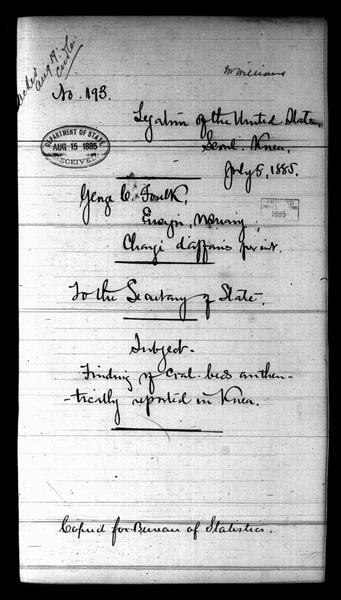 Ackd
Aug 19.
Mr Williams
No. 193.
Legation of the United States,
Seoul. Korea,
July 5, 1885.
DEPARTMENT OF STATE
AUG 15 1885
RECEIVED
Georg C. Foulk,
Ensign, U.S. Navy,
1885
Chargé d'affaires
To the Secretary of State.
Subject.
Finding of coal-beds authen-
-tically reported in Korea.
Copied for Bureau of Statistics.